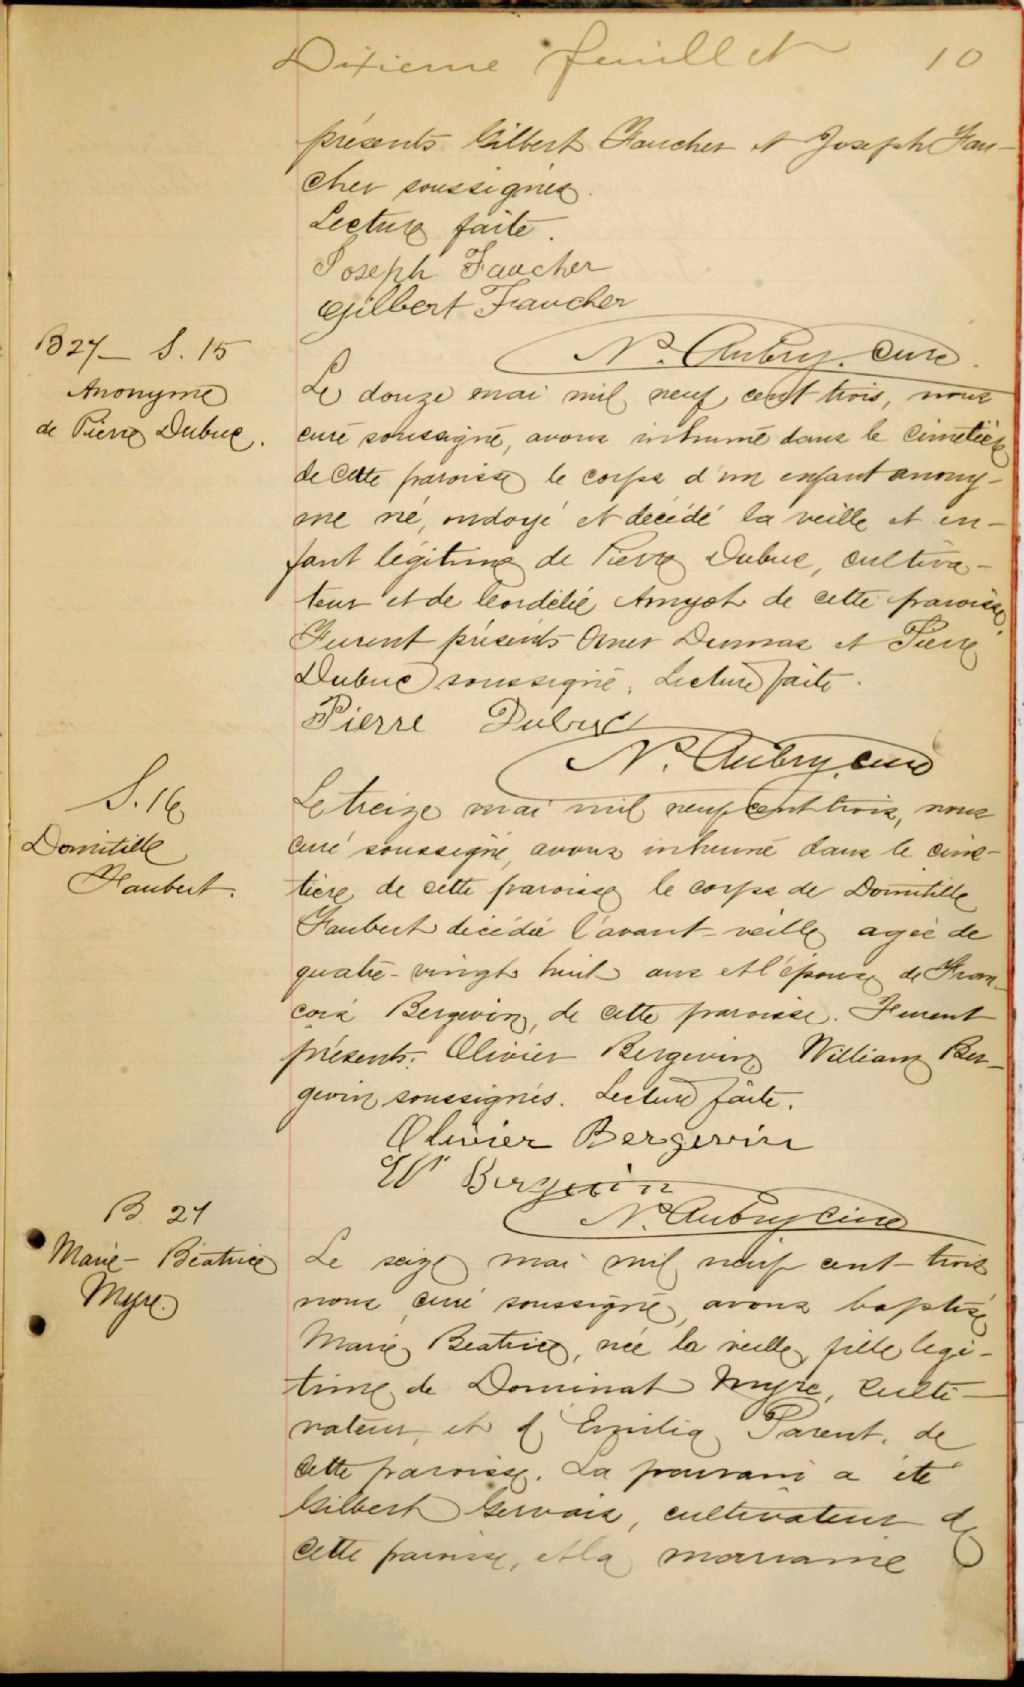 Dixieme feuillet 10
présents Gilbert Faucher et Joseph Fau-
cher soussignés.
Lecture faite.
Joseph Faucher
Gilbert Faucher
N. Aubry, curé.
B27 — S. 15
Anonyme
de Pierre Dubuc.
Le douze mai mil neuf cent trois, nous
curé soussigné, avons inhumé dans le cimetière
de cette paroisse le corps d'un enfant anony-
me né, ondoyé et décédé la veille et en-
fant légitime de Pierre Dubuc, cultiva-
teur et de Cordélie Amyot de cette paroisse.
Furent présents Omer Dumas et Pierre
Dubuc soussigné. Lecture faite.
Pierre Dubuc
N. Aubry, curé
S. 16
Domitille
Faubert.
Le treize mai mil neuf cent trois, nous
curé soussigné, avons inhumé dans le cime-
tière de cette paroisse le corps de Domitille
Faubert décédée l'avant-veille agée de
quatre-vingt huit ans et l'épouse de Fran-
cois Bergevin, de cette paroisse. Furent
présents: Olivier Bergevin, William Ber-
gevin soussignés. Lecture faite.
Olivier Bergevin
W Bergevin
N. Aubry curé
B. 27
Marie-Béatrice
Myre.
Le seize mai mil neuf cent trois
nous, curé soussigné, avons baptisé
Marie, Beatrice, née la veille, fille legi-
time de Dominat Myre, culti-
vateur, et d'Emilia Parent, de
cette paroisse. La parrain a été
Gilbert Gervais, cultivateur de
cette paroisse, et la marraine